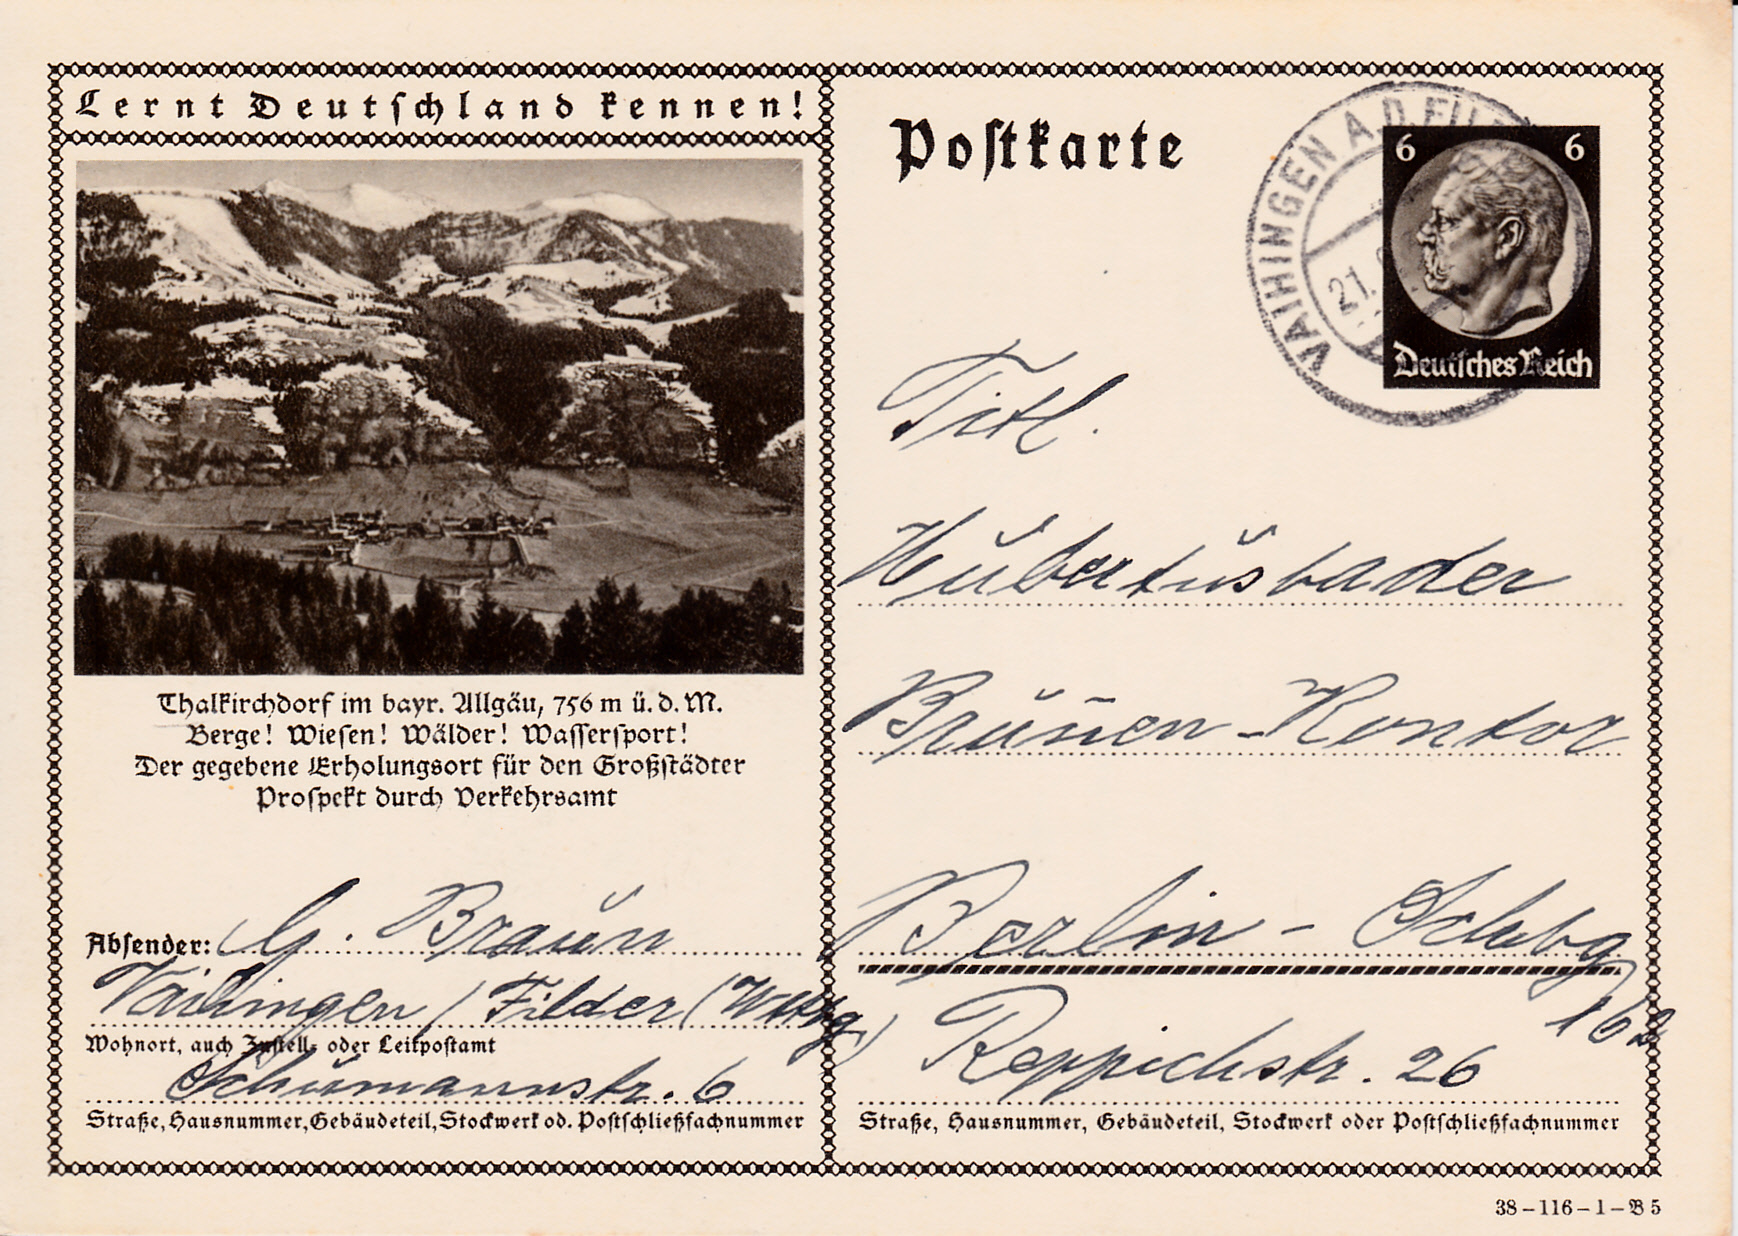 Lernt Deutschland kennen!
Thalkirchdorf im bayr. Allgäu, 756 m ü. d. M.
Berge! Wiesen! Wälder! Wassersport!
Der gegebene Erholungsort für den Großstädter
Prospekt durch Verkehrsamt
Absender: G. Braun
Vaihingen / Filder (Wttbg.)
Wohnort, auch Zustell- oder Leitpostamt
Schumannstr. 6
Straße, Hausnummer, Gebäudeteil, Stockwerk od. Postschließfachnummer
Postkarte
VAIHINGEN A. D. FILD
21.
6 6
Deutsches Reich
Titl.
Hubertusbader
Brunnen-Kontor
Berlin - Schbg
Reppichstr. 26
Straße, Hausnummer, Gebäudeteil, Stockwerk oder Postschließfachnummer
38-116-1-B5